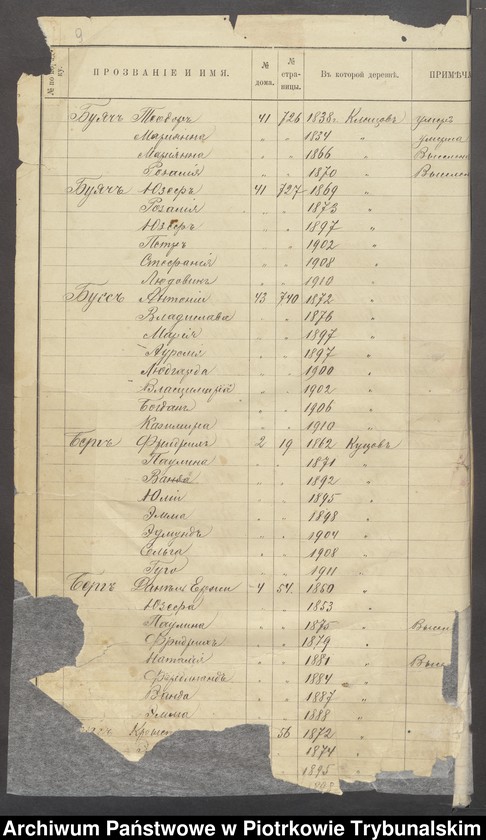 9
№ по пор. ку.
ПРОЗВАНІЕ И ИМЯ.
№ дома.
№ страницы.
Въ которой деревнѣ.
ПРИМѢЧА
Буячъ Теодоръ 41 726 1838 г. Клещовъ умеръ
Маріянна " " 1834 " умерла
Маріянна " " 1866 "
Розалія " " 1870 "
Буячъ Юзефъ 41 727 1869 "
Розалія " " 1873 "
Юзефъ " " 1897 "
Петръ " " 1902 "
Стефанія " " 1908 "
Людовикъ " " 1910 "
Буссъ Антоній 43 740 1872 "
Владислава " " 1876 "
Марія " " 1897 "
" " 1897 "
Людгарда " " 1900 "
" " 1902 "
Богданъ " " 1906 "
Казимира " " 1910 "
Бергъ Фридрихъ 2 19 1862 Куцовъ
Паулина " " 1871 "
Ванда " " 1892 "
Юлій " " 1895 "
Эмма " " 1898 "
Эдмундъ " " 1904 "
" " 1908 "
Гуго " " 1911 "
Бергъ 4 54 1850 "
Юзефа " " 1853 "
Паулина " " 1875 "
Фридрихъ " " 1879 "
Наталія " " 1881 "
Фердинандъ " " 1884 "
Ванда " " 1887 "
Эмма " " 1888 "
56 1872 "
1874 "
1895 "
Archiwum Państwowe w Piotrkowie Trybunalskim